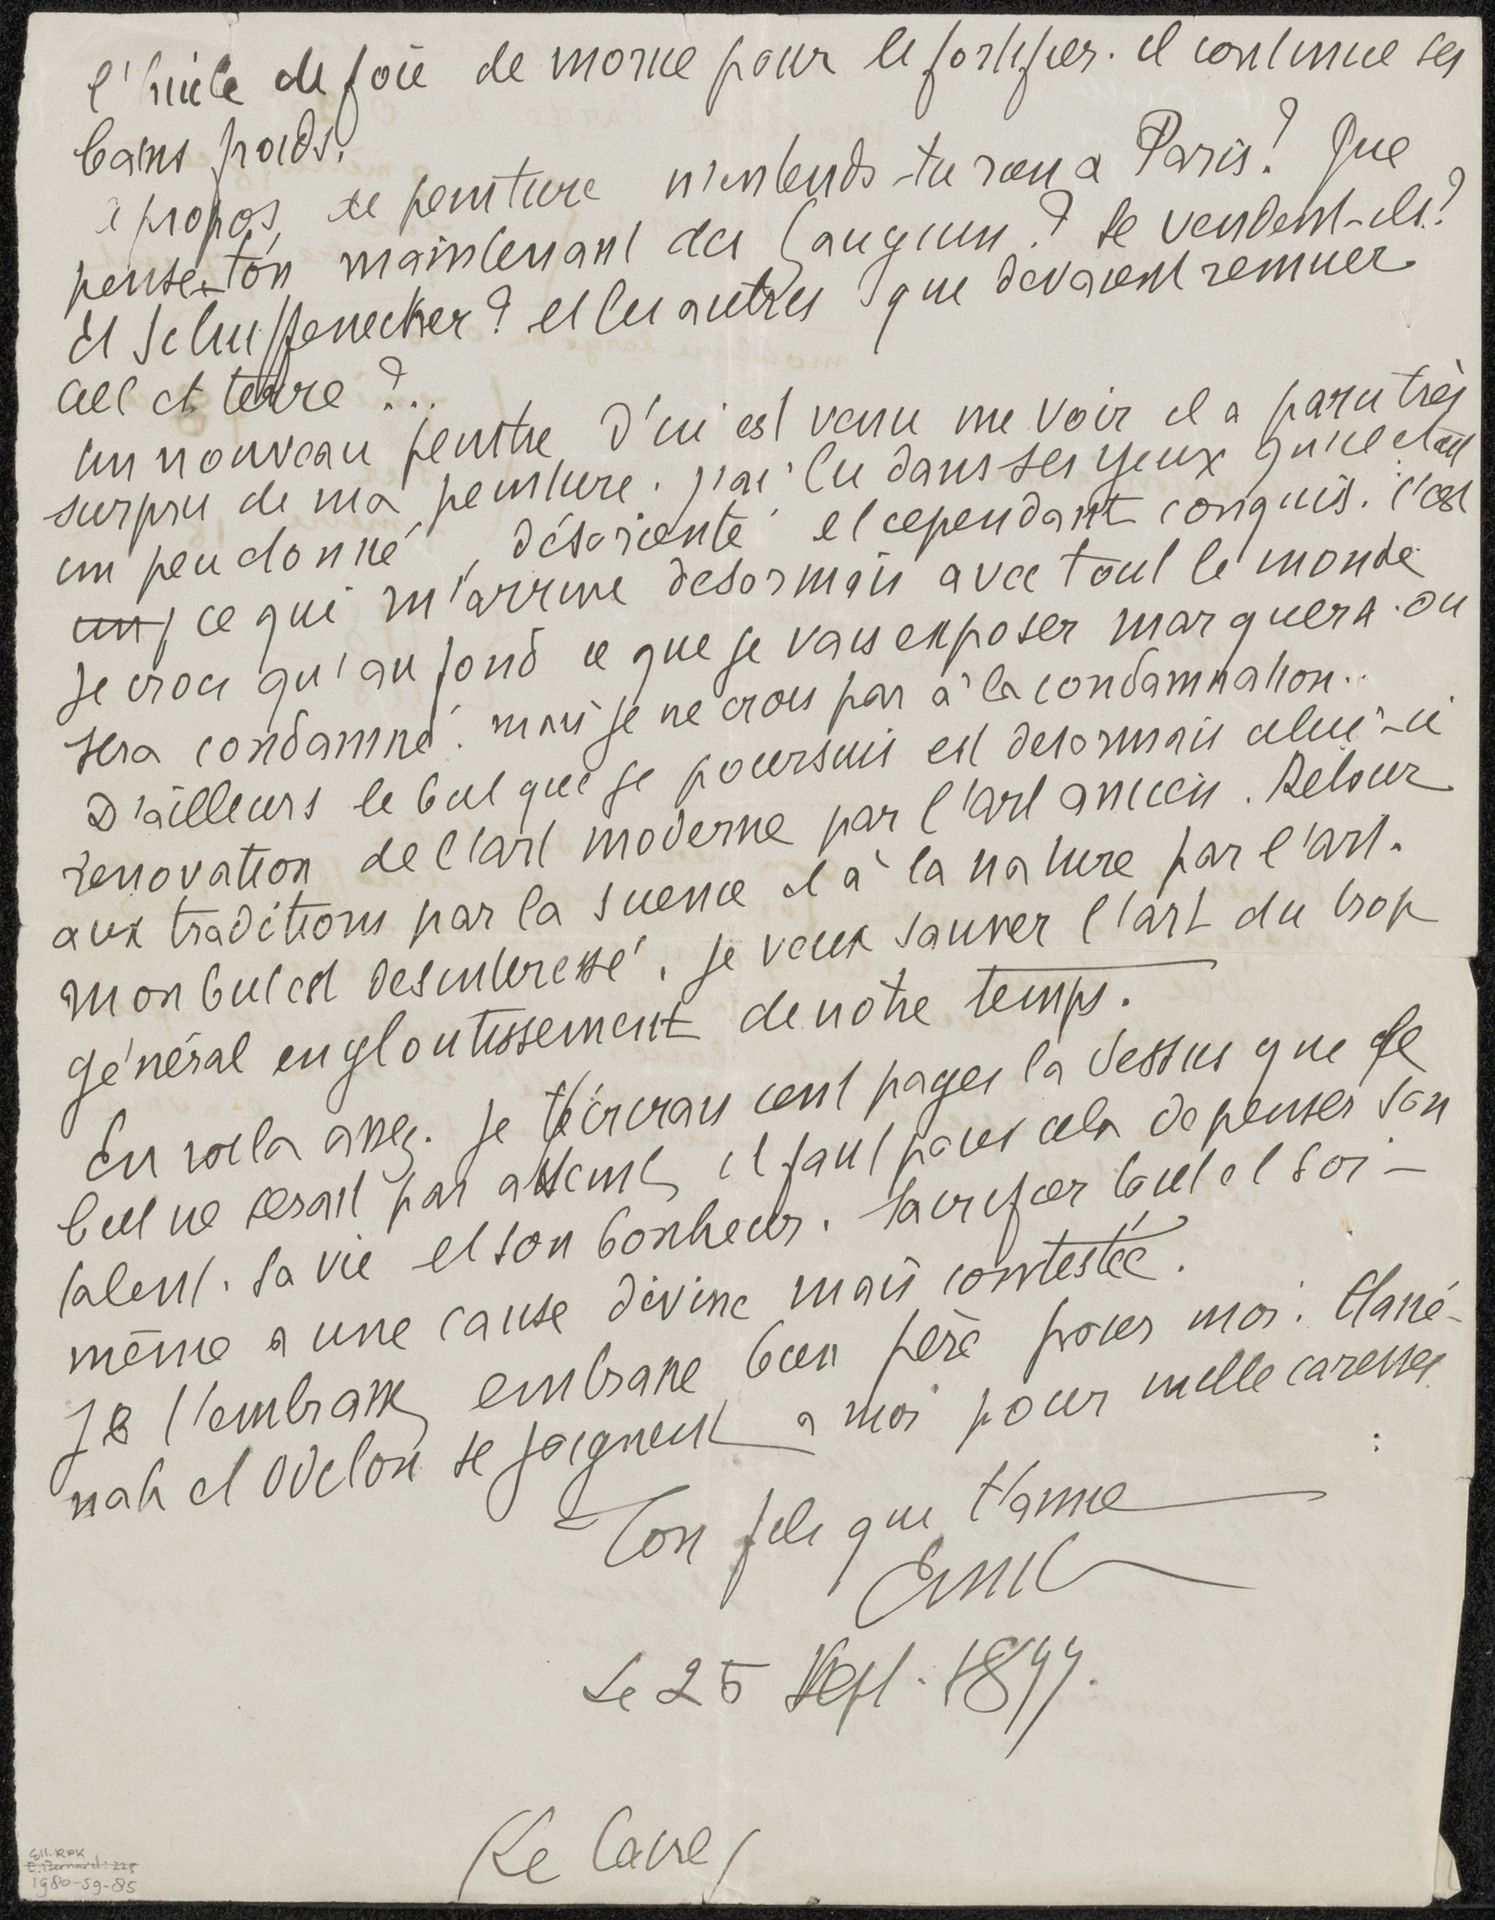 l'huile de foie de morue pour le fortifier. il continue ses
bains froids.
à propos de peinture n'entends-tu rien a Paris? Que
pense-t'on maintenant des Gauguin? se vendent-ils?
et Schuffenecker? et les autres que devaient remuer
ciel et terre?...
un nouveau peintre d'ici est venu me voir il a paru très
surpris de ma peinture. j'ai lu dans ses yeux qu'il etait
un peu étonné, désorienté et cependant conquis. c'est
un ce qui m'arrive desormais avec tout le monde
Je crois qu'au fond ce que je vais exposer marquera. ou
sera condamné. mais je ne crois pas à la condamnation..
D'ailleurs le but que je poursuis est desormais celui-ci
renovation de l'art moderne par l'art ancien. Retour
aux traditions par la science et à la nature par l'art.
mon but est desinteressé. je veux sauver l'art du trop
général engloutissement de notre temps.
En voila assez. Je t'écrirais cent pages la dessus que le
but ne serait pas atteint, il faut pour cela depenser son
talent. sa vie et son bonheur. sacrifier tout et soi-
même a une cause divine mais contestée.
Je t'embrasse, embrasse bien père pour moi. Hané-
nah et Odelon se joignent a moi pour mille caresses
Ton fils que t'aime
Emile
Le 25 Sept. 1897.
(Le Caire)
Coll. RPK
E. Bernard: 225
1980-59-85